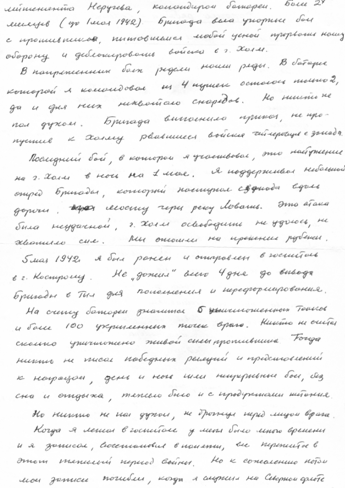 лейтенанта Неручева, командиром батареи. Более 2х
месяцев (до 1 мая 1942) Бригада вела упорные бои
с противником, пытавшимся любой ценой прорвать нашу
оборону и деблокировать войска в г. Холм.
В напряженных боях редели наши ряды. В батарее
которой я командовал из 4 пушек осталось только 2,
да и для них нехватало снарядов. Но никто не
пал духом. Бригада выполнила приказ, не про-
пустив к Холму рвавшиеся войска с запада
Последний бой, в котором я участвовал, это наступление
на г. Холм в ночь на 1 мая. Я поддерживал небольшой
отряд Бригады, который наступал вдоль
дороги. мосту через реку Ловать. Эта атака
была неудачной, г. Холм освободить не удалось, не
хватило сил. Мы отошли на прежние рубежи.
5 мая 1942 я был ранен и отправлен в госпиталь
в г. Кострому. Не "дожил" всего 4 дня до вывода
Бригады в тыл для пополнения и переформирования.
На счету батареи значится 5 уничтоженных танков
и более 100 укрепленных точек врага. Никто не считал
сколько уничтожено живой силы противника. Тогда
никто не писал победных реляций и представлений
к наградам, день и ночь шли непрерывные бои, без
сна и отдыха, тяжело было и с продуктами питания
Но никто не пал духом, не дрогнул перед лицом врага.
Когда я лежал в госпитале у меня было много времени
и я записал, восстановил в памяти, все пережитое в
этом тяжелый период войны. Но к сожалению
мои записи погибли, когда я служил на Северном флоте